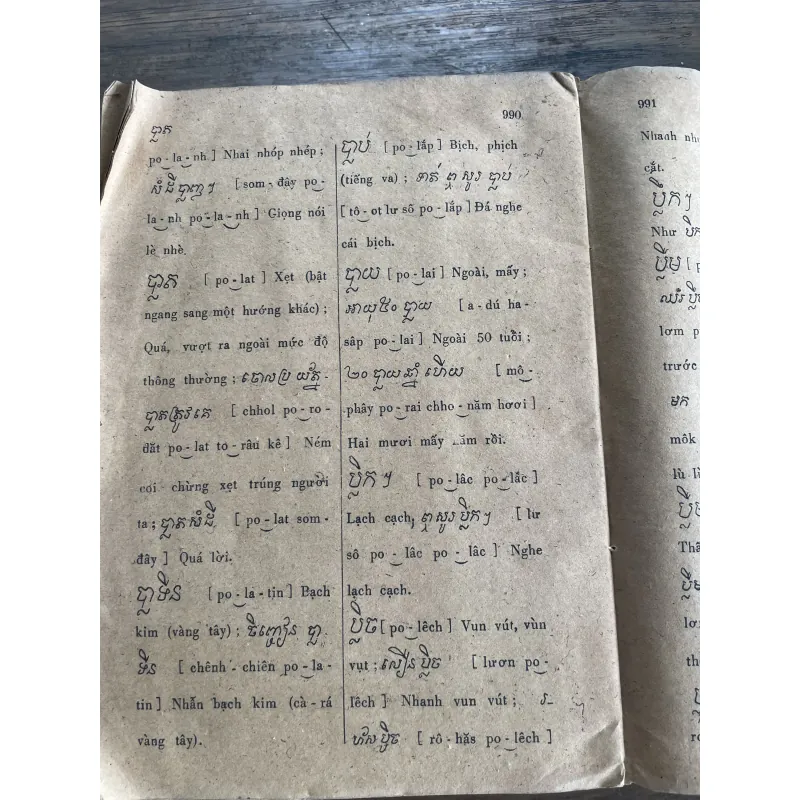 990
ប្លាត
po-la-nh ] Nhai nhóp nhép ;
សំដីប្លាញៗ [ som-đây po-
la-nh po-la-nh ] Giọng nói
lè nhè.
ប្លាត [ po-lat ] Xẹt (bật
ngang sang một hướng khác) ;
Quá, vượt ra ngoài mức độ
thông thường ; ចោលប្រយ័ត្ន-
ប្លាតត្រូវគេ [ chhol po-ro-
dăt po-lat to-râu kê ] Ném
coi chừng xẹt trúng người
ta ; ប្លាតសំដី [ po-lat som-
đây ] Quá lời.
ប្លាទីន [ po-la-tin ] Bạch
kim (vàng tây) ; ចិញ្ចៀនប្លា-
ទីន [ chênh-chiên po-la-
tin ] Nhẫn bạch kim (cà-rá
vàng tây).
ប្លាប់ [ po-lắp ] Bịch, phịch
(tiếng va) ; ទាត់ឮសូរប្លាប់
[ tô-ot lư sô po-lắp ] Đá nghe
cái bịch.
ប្លាយ [ po-lai ] Ngoài, mấy ;
អាយុ៥០ប្លាយ [ a-dú ha-
sâp po-lai ] Ngoài 50 tuổi ;
២០ប្លាយឆ្នាំហើយ [ mô-
phây po-rai chho-năm hơơi ]
Hai mươi mấy năm rồi.
ប្លឹកៗ [ po-lâc po-lấc ]
Lạch cạch, ឮសូរប្លឹកៗ [ lư
sô po-lâc po-lâc ] Nghe
lạch cạch.
ប្លិច [ po-lêch ] Vun vút, vùn
vụt ; លឿនប្លិច [ lươn po-
lêch ] Nhanh vun vút ; រ-
ហ័សប្លិច [ rô-hăs po-lêch ]
991
Nhanh
cắt.
ប្លឹកៗ
Như
ប្លឹម
lơm
trước
មក
môk
lù